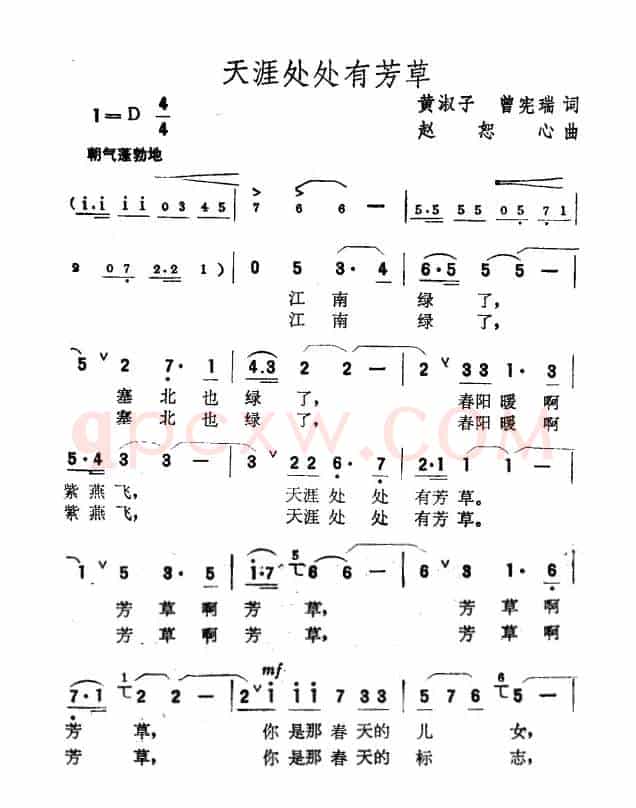 天涯处处有芳草
1=D 4/4
黄淑子 曾宪瑞 词
赵恕心 曲
朝气蓬勃地
(i·i i i 0 3 4 5 | 7 6 6 — | 5·5 5 5 0 5 7 1 |
2 0 7 2·2 1) | 0 5 3· 4 | 6·5 5 5 — |
江南 绿了,
江南 绿了,
5 ∨ 2 7· 1 | 4·3 2 2 — | 2 ∨ 3 3 1· 3 |
塞北也绿了, 春阳暖啊
塞北也绿了, 春阳暖啊
5·4 3 3 — | 3 ∨ 2 2 6· 7 | 2·1 1 1 — |
紫燕飞, 天涯处处有芳草。
紫燕飞, 天涯处处有芳草。
1 ∨ 5 3· 5 | i·7 5 6 6 — | 6 ∨ 3 1· 6 |
芳草啊芳草, 芳草啊
芳草啊芳草, 芳草啊
mf
7·1 1 2 2 — | 2 ∨ i i i 7 3 3 | 5 7 6 6 5 — |
芳草, 你是那春天的儿女,
芳草, 你是那春天的标志,
qpcxw.com